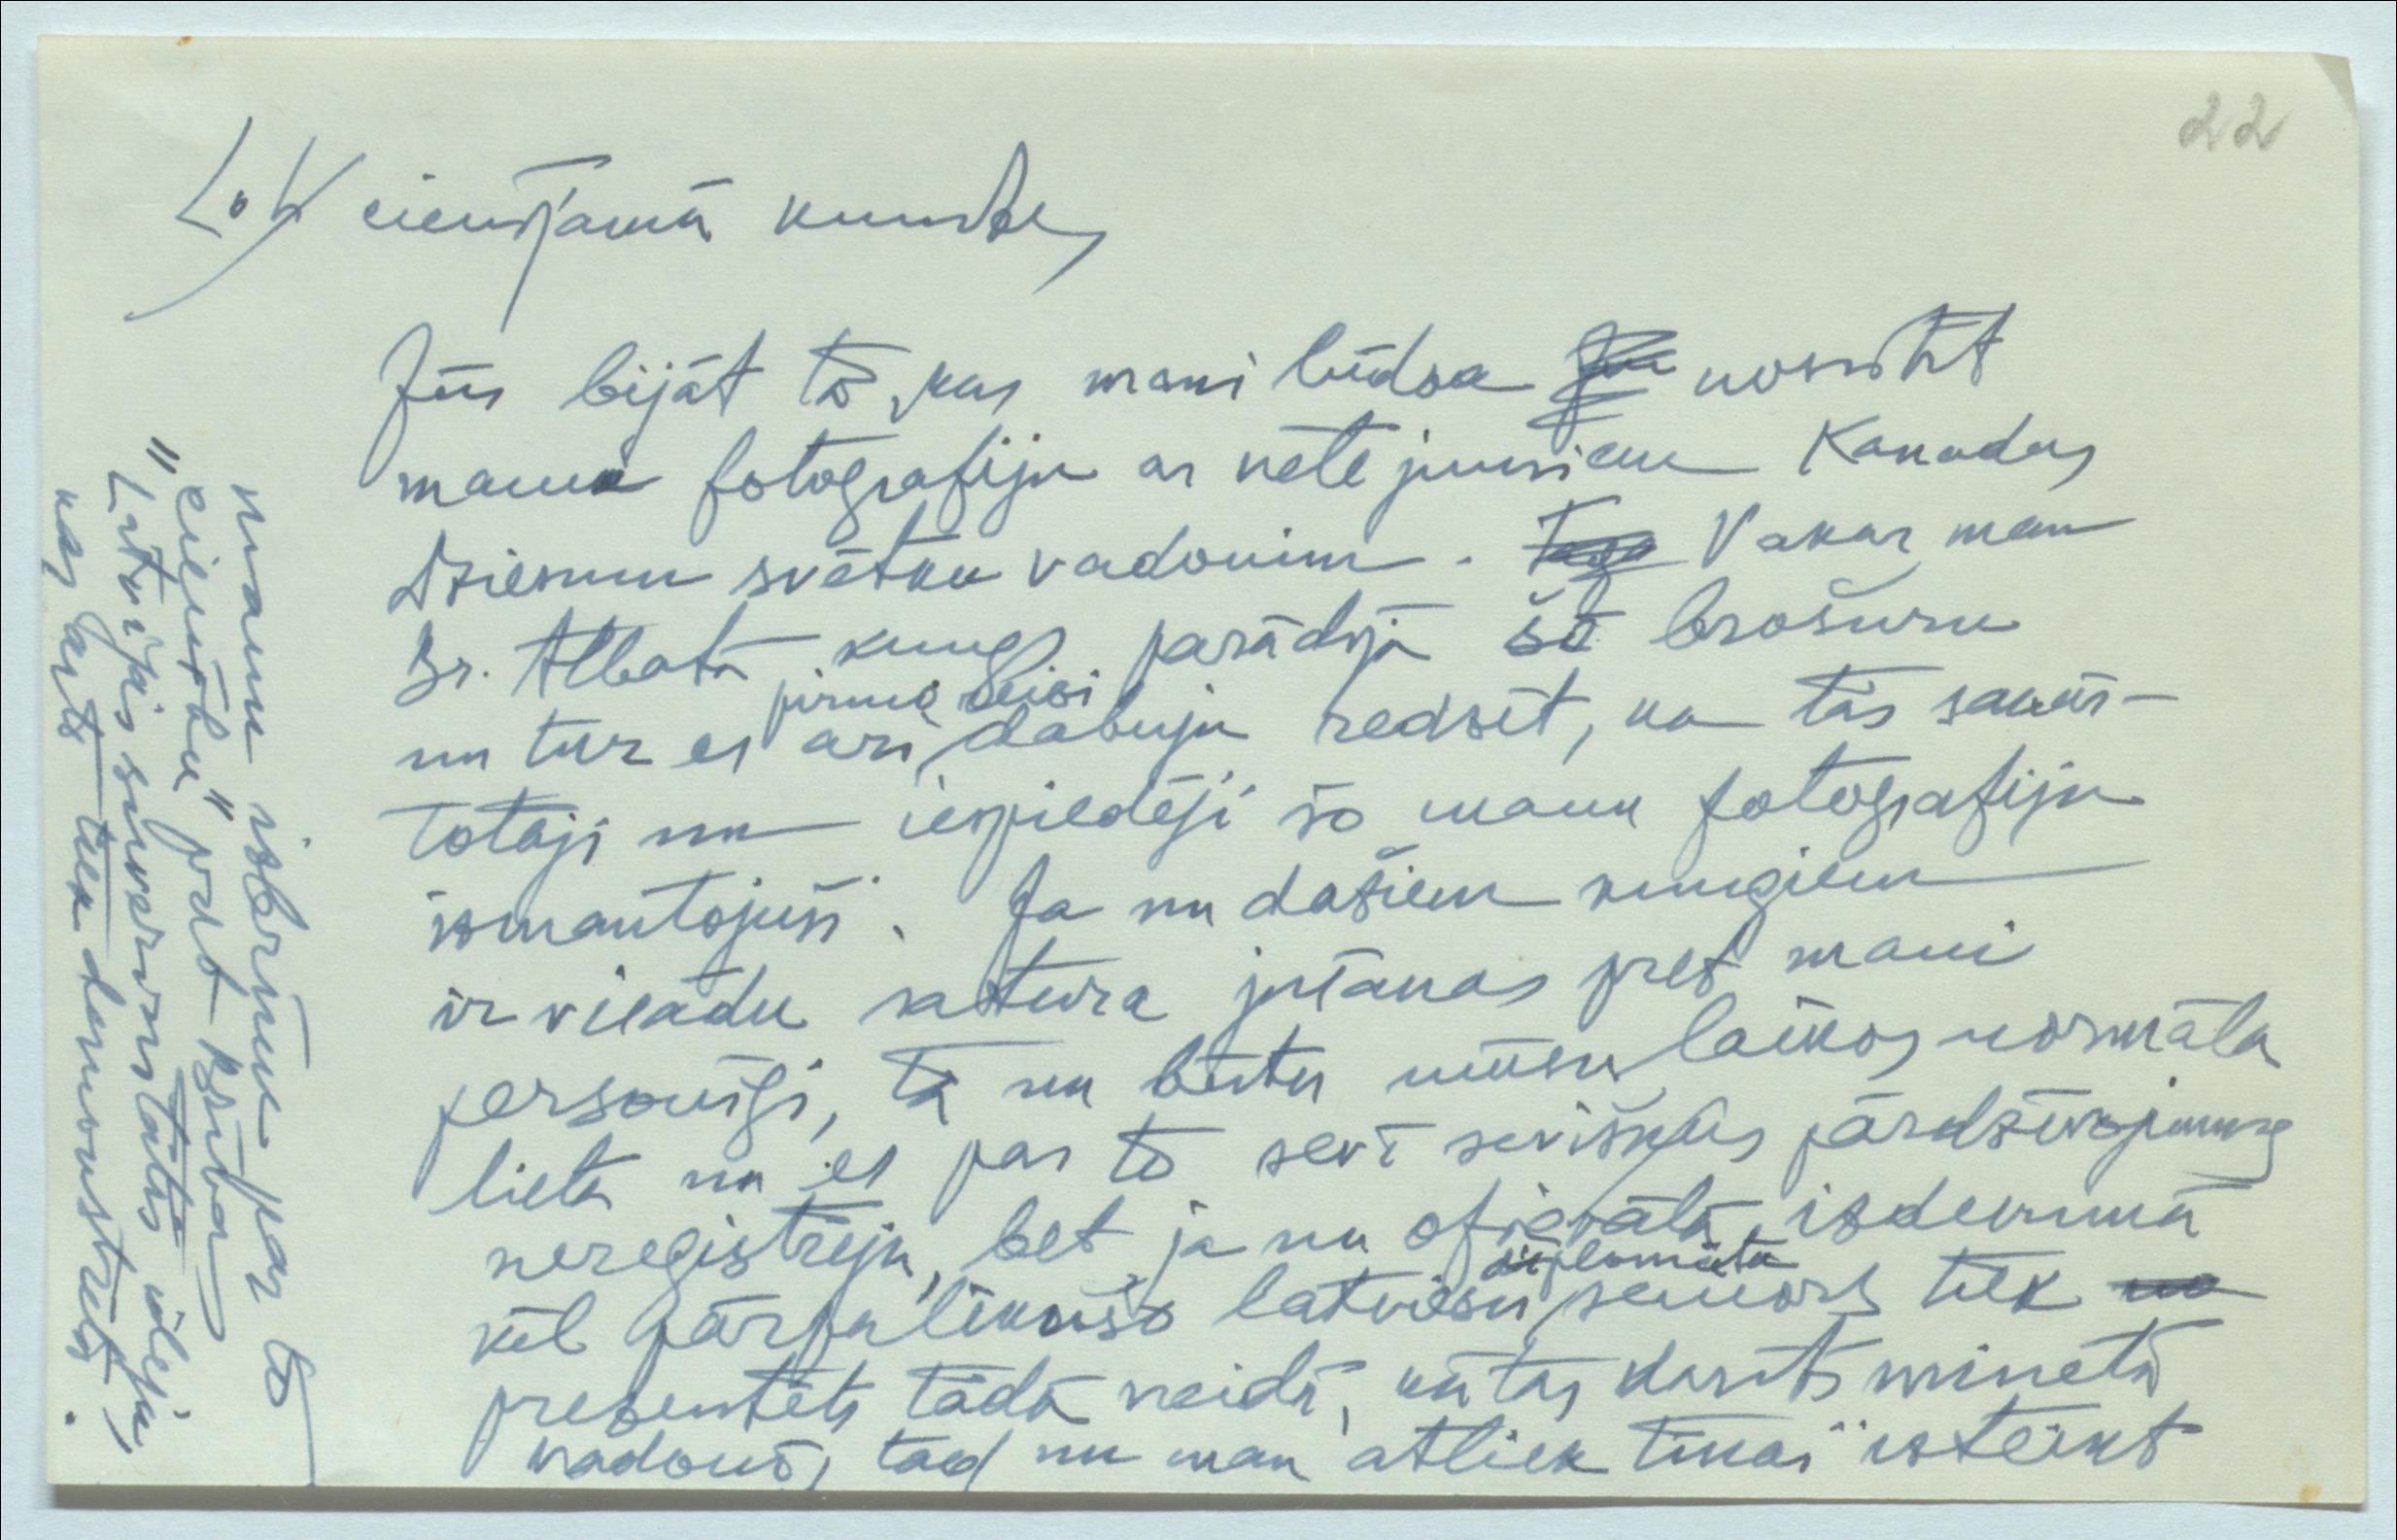 22
Ļ. cienījamā kundze,
Jūs bijāt tā, kas mani lūdza nosūtīt
manu fotografiju ar vēlējumiem Kanadas
Dziesmu svētku vadonim. Vakar man
Br. Albata kungs parādīja šo brošuru
un tur es arī pirmo reizi dabuju redzēt, ka tās sakār-
totāji un iespiedēji šo manu fotografiju
izmantojuši. Ja nu dažiem kungiem
ir vienādu satura jūtanas pret mani
personīgi, tā nu būtu mūsu laikos normāla
lieta un es par to sevī sevišķus pārdzīvojumus
neregistrēju, bet ja nu oficiālā izdevumā
vēl pārpalikušo latviešu diplomātu seniors tiek
prezentēts tādā veidā, kā tas darīts minētā
vadonī, tad nu man atliek tikai izteikt
manu izbrīnu par to
"cienību" pret
Latvijas suverenitātes ideju,
kas ar to tiek demonstrēta.